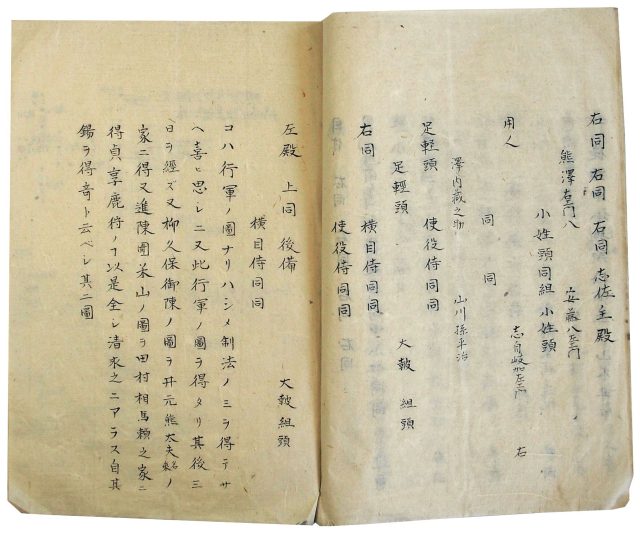 右同 右同 右同 志佐主殿
熊澤右門八 安藤八左衛門
小姓頭同組 小姓頭
用人 同 同 右
澤内蔵之助 山川孫平治
足軽頭 使役侍同同
足軽頭 大皷組頭
右同 横目侍同同
使役侍同同
左殿 上同 後備 大皷組頭
横目侍同同
コハ行軍ノ圖ナリハシメ制法ノミヲ得テサ
ヘ喜ヒ思レニ又此行軍ノ圖ヲ得タリ其後三
日ヲ經ズ又柳久保御陳ノ圖ヲ井元熊太夫ノ
家ニ得又進陳圖米山ノ圖ヲ田村相馬頼之家ニ
得貞享鹿狩ノヿ以是全シ清永之ニアラス自其
錫ヲ得竒ト云ベシ其二圖